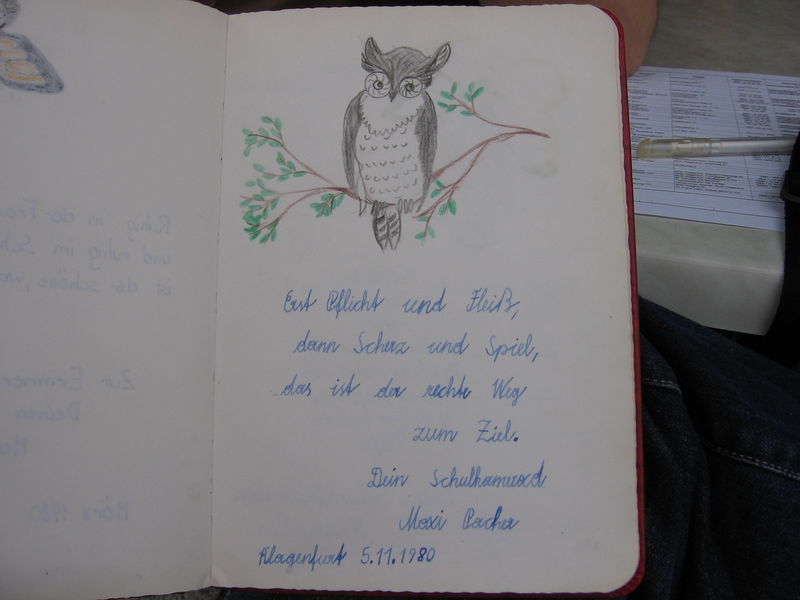 Ruhig in der
und ruhig im
ist der schöne
Zur
Deinen
März 1980
Erst Pflicht und Fleiß,
dann Scherz und Spiel,
das ist der rechte Weg
zum Ziel.
Dein Schulkamerad
Maxi Pacher
Klagenfurt 5.11.1980